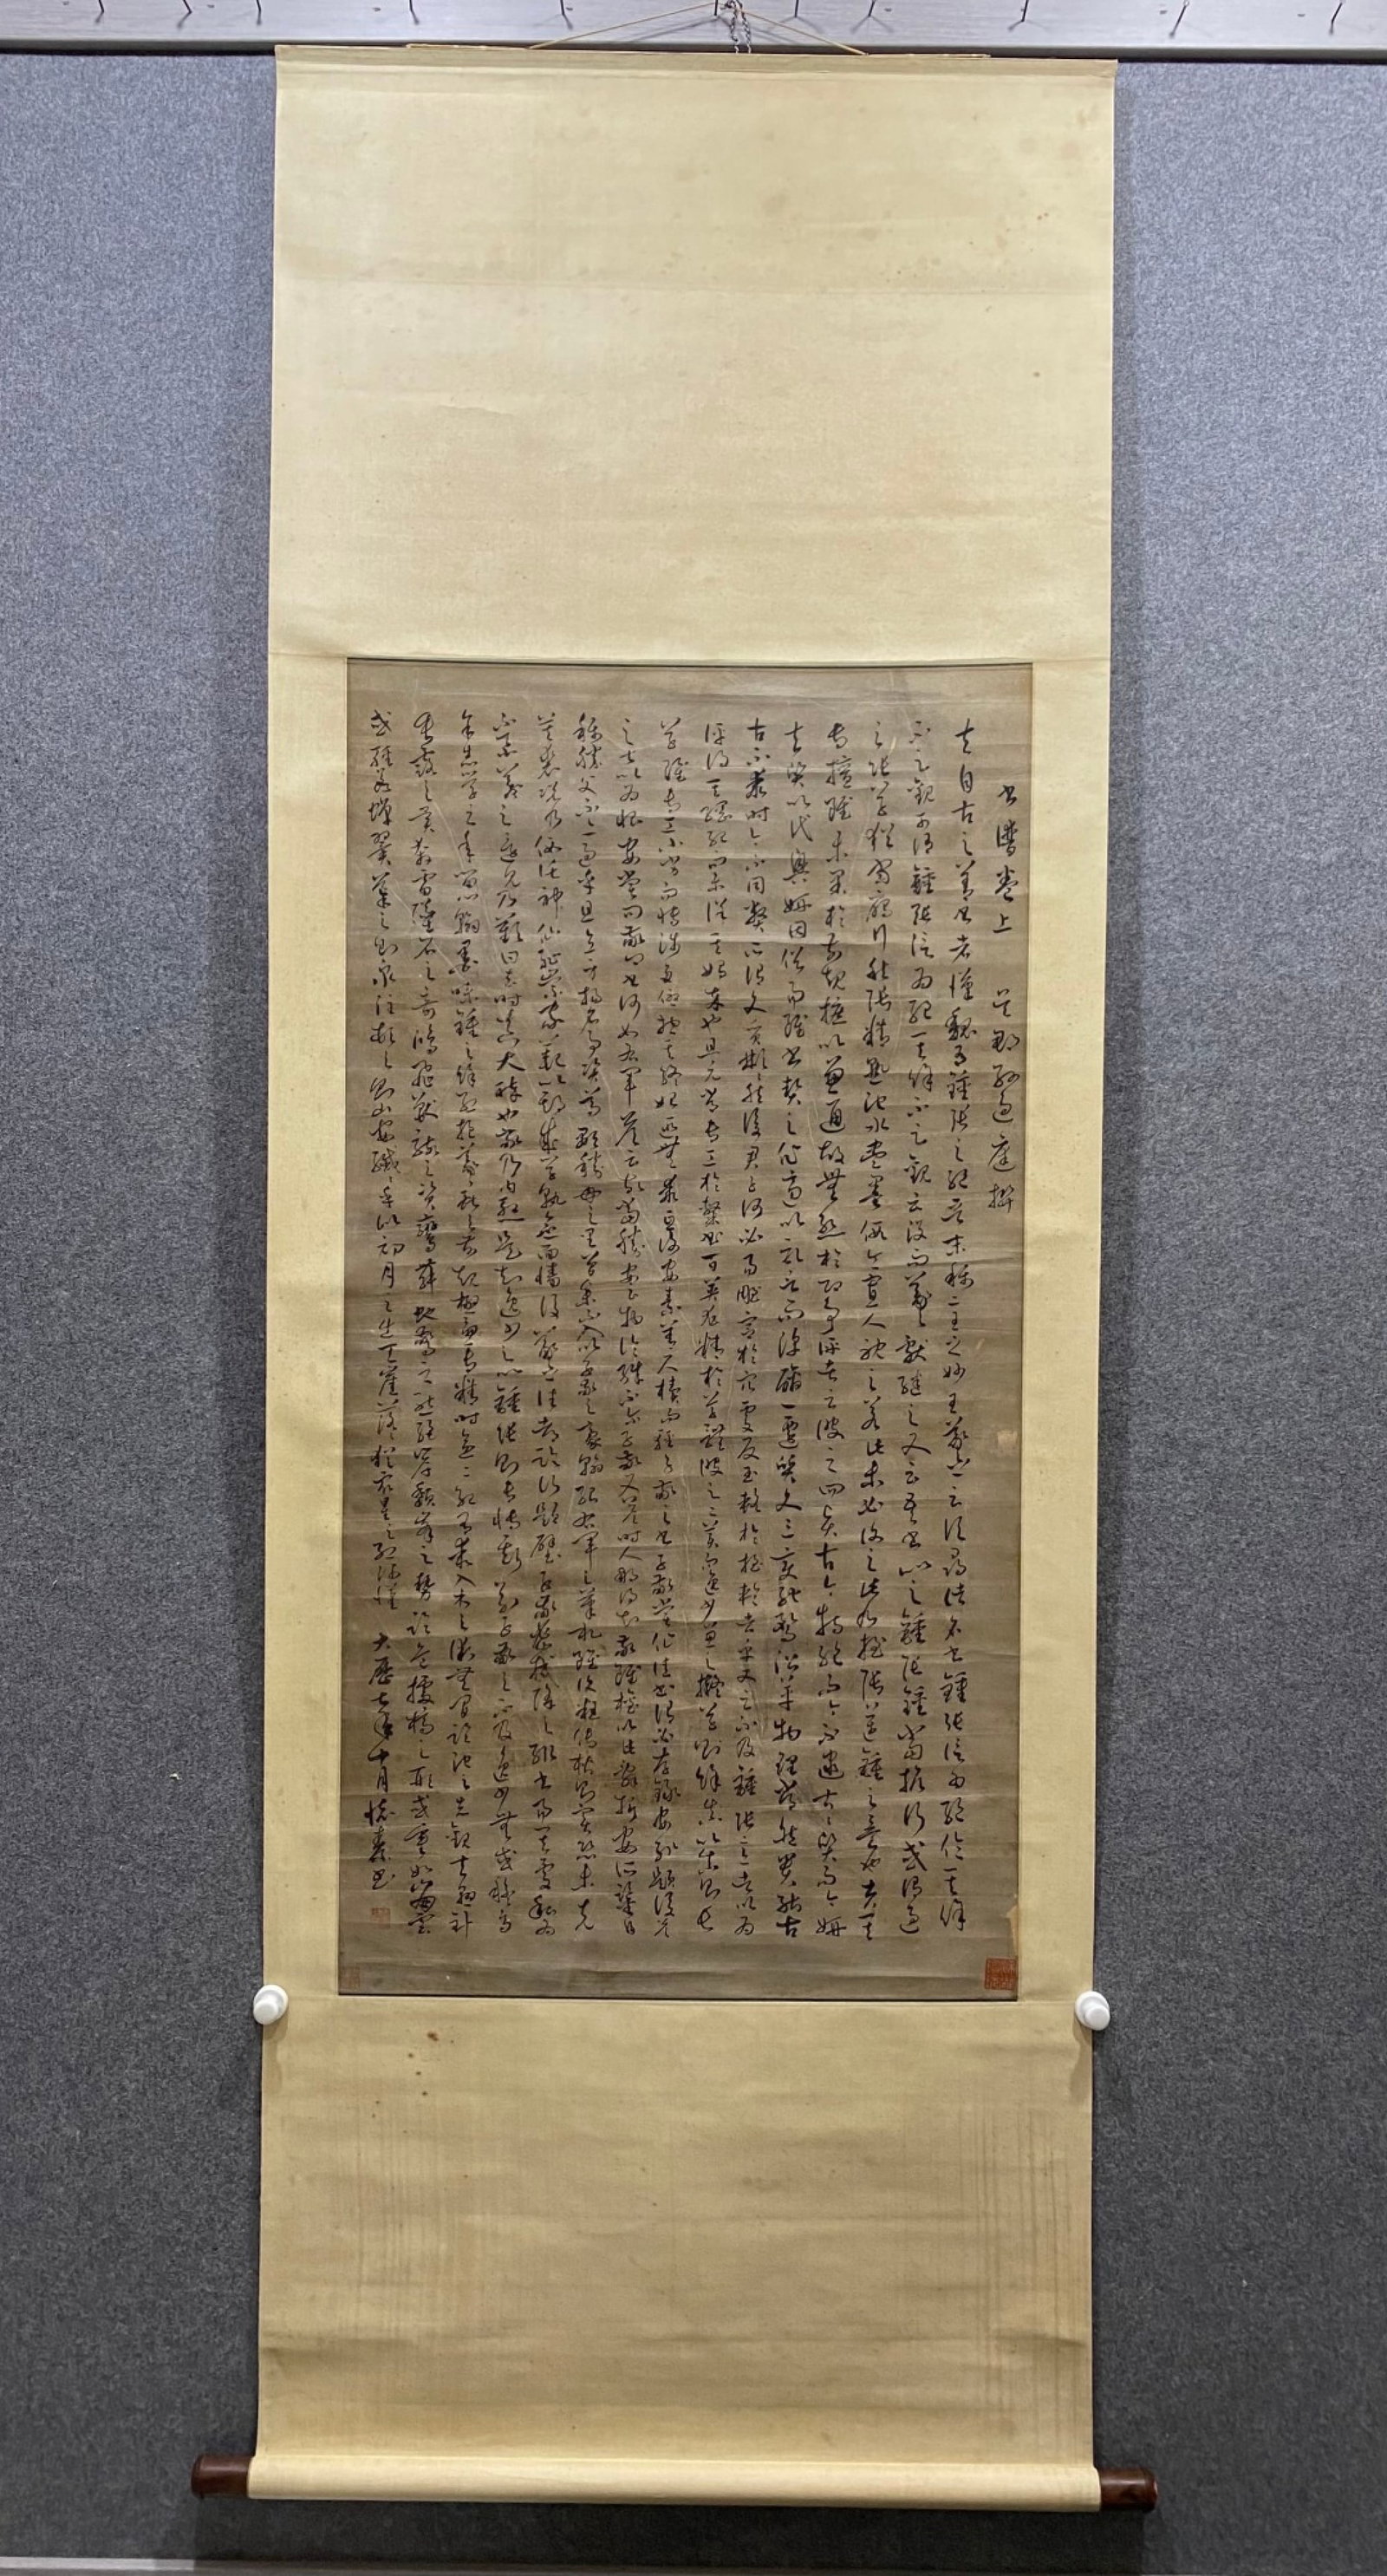 書譜卷上 吳郡孫過庭撰
夫自古之善書者漢魏有鍾張之絕晉末稱二王之妙王羲之云頃尋諸名書鍾張信為絕倫其餘
不足觀可謂鍾張信為絕其餘不足觀云沒而羲獻繼之又云吾書比之鍾張鍾當抗行或謂過
之張草猶當鴈行然張精熟池水盡墨假令寡人耽之若此未必謝之此乃推張邁鍾之意也考其
專擅雖未果於前規摭以兼通故無慙於即事評者云彼之四賢古今特絕而今不逮古古質而今妍
夫質以代興妍因俗易雖書契之作適以記言而淳醨一遷質文三變馳騖沿革物理常然貴能古
古不乖時今不同弊所謂文質彬彬然後君子何必易雕宮於穴處反玉輅於椎輪者乎又云不及鍾張意者以為
評得其綱紀而未詳其始卒也且元常專工於隸書百英尤精於草體彼之二美而逸少兼之擬草則餘真比真則長
草雖專工小劣而博涉多優總其終始匪無乖互謝安素善尺牘而輕子敬之書子敬嘗作佳書謂必存錄安輒題後答
之甚以為恨安嘗問敬卿書何如右軍答云故當勝安云物論殊不爾子敬又答時人那得知敬雖權以此辭折安所鑒自
稱勝父不亦過乎且立身揚名事資尊顯勝母之里曾參不入以子敬之豪翰紹右軍之筆札雖復粗傳楷則實恐未克
箕裘況乃假託神仙恥崇家範以斯成學孰愈面牆後羲之往都臨行題壁子敬密拭除之輒書易其處私為
不惡羲之還見乃歎曰吾去時真大醉也敬乃內慙是知逸少之比鍾張則專博斯別子敬之不及逸少無或疑焉
余志學之年留心翰墨味鍾張之餘烈挹羲獻之前規極慮專精時逾二紀有乖入木之術無間臨池之志觀夫懸針
垂露之異奔雷墜石之奇鴻飛獸駭之資鸞舞蛇驚之態絕岸頹峯之勢臨危據槁之形或重如崩雲
或輕若蟬翼導之則泉注頓之則山安纖纖乎似初月之出天崖落落猶眾星之列河漢 大歷七年十月懷素書